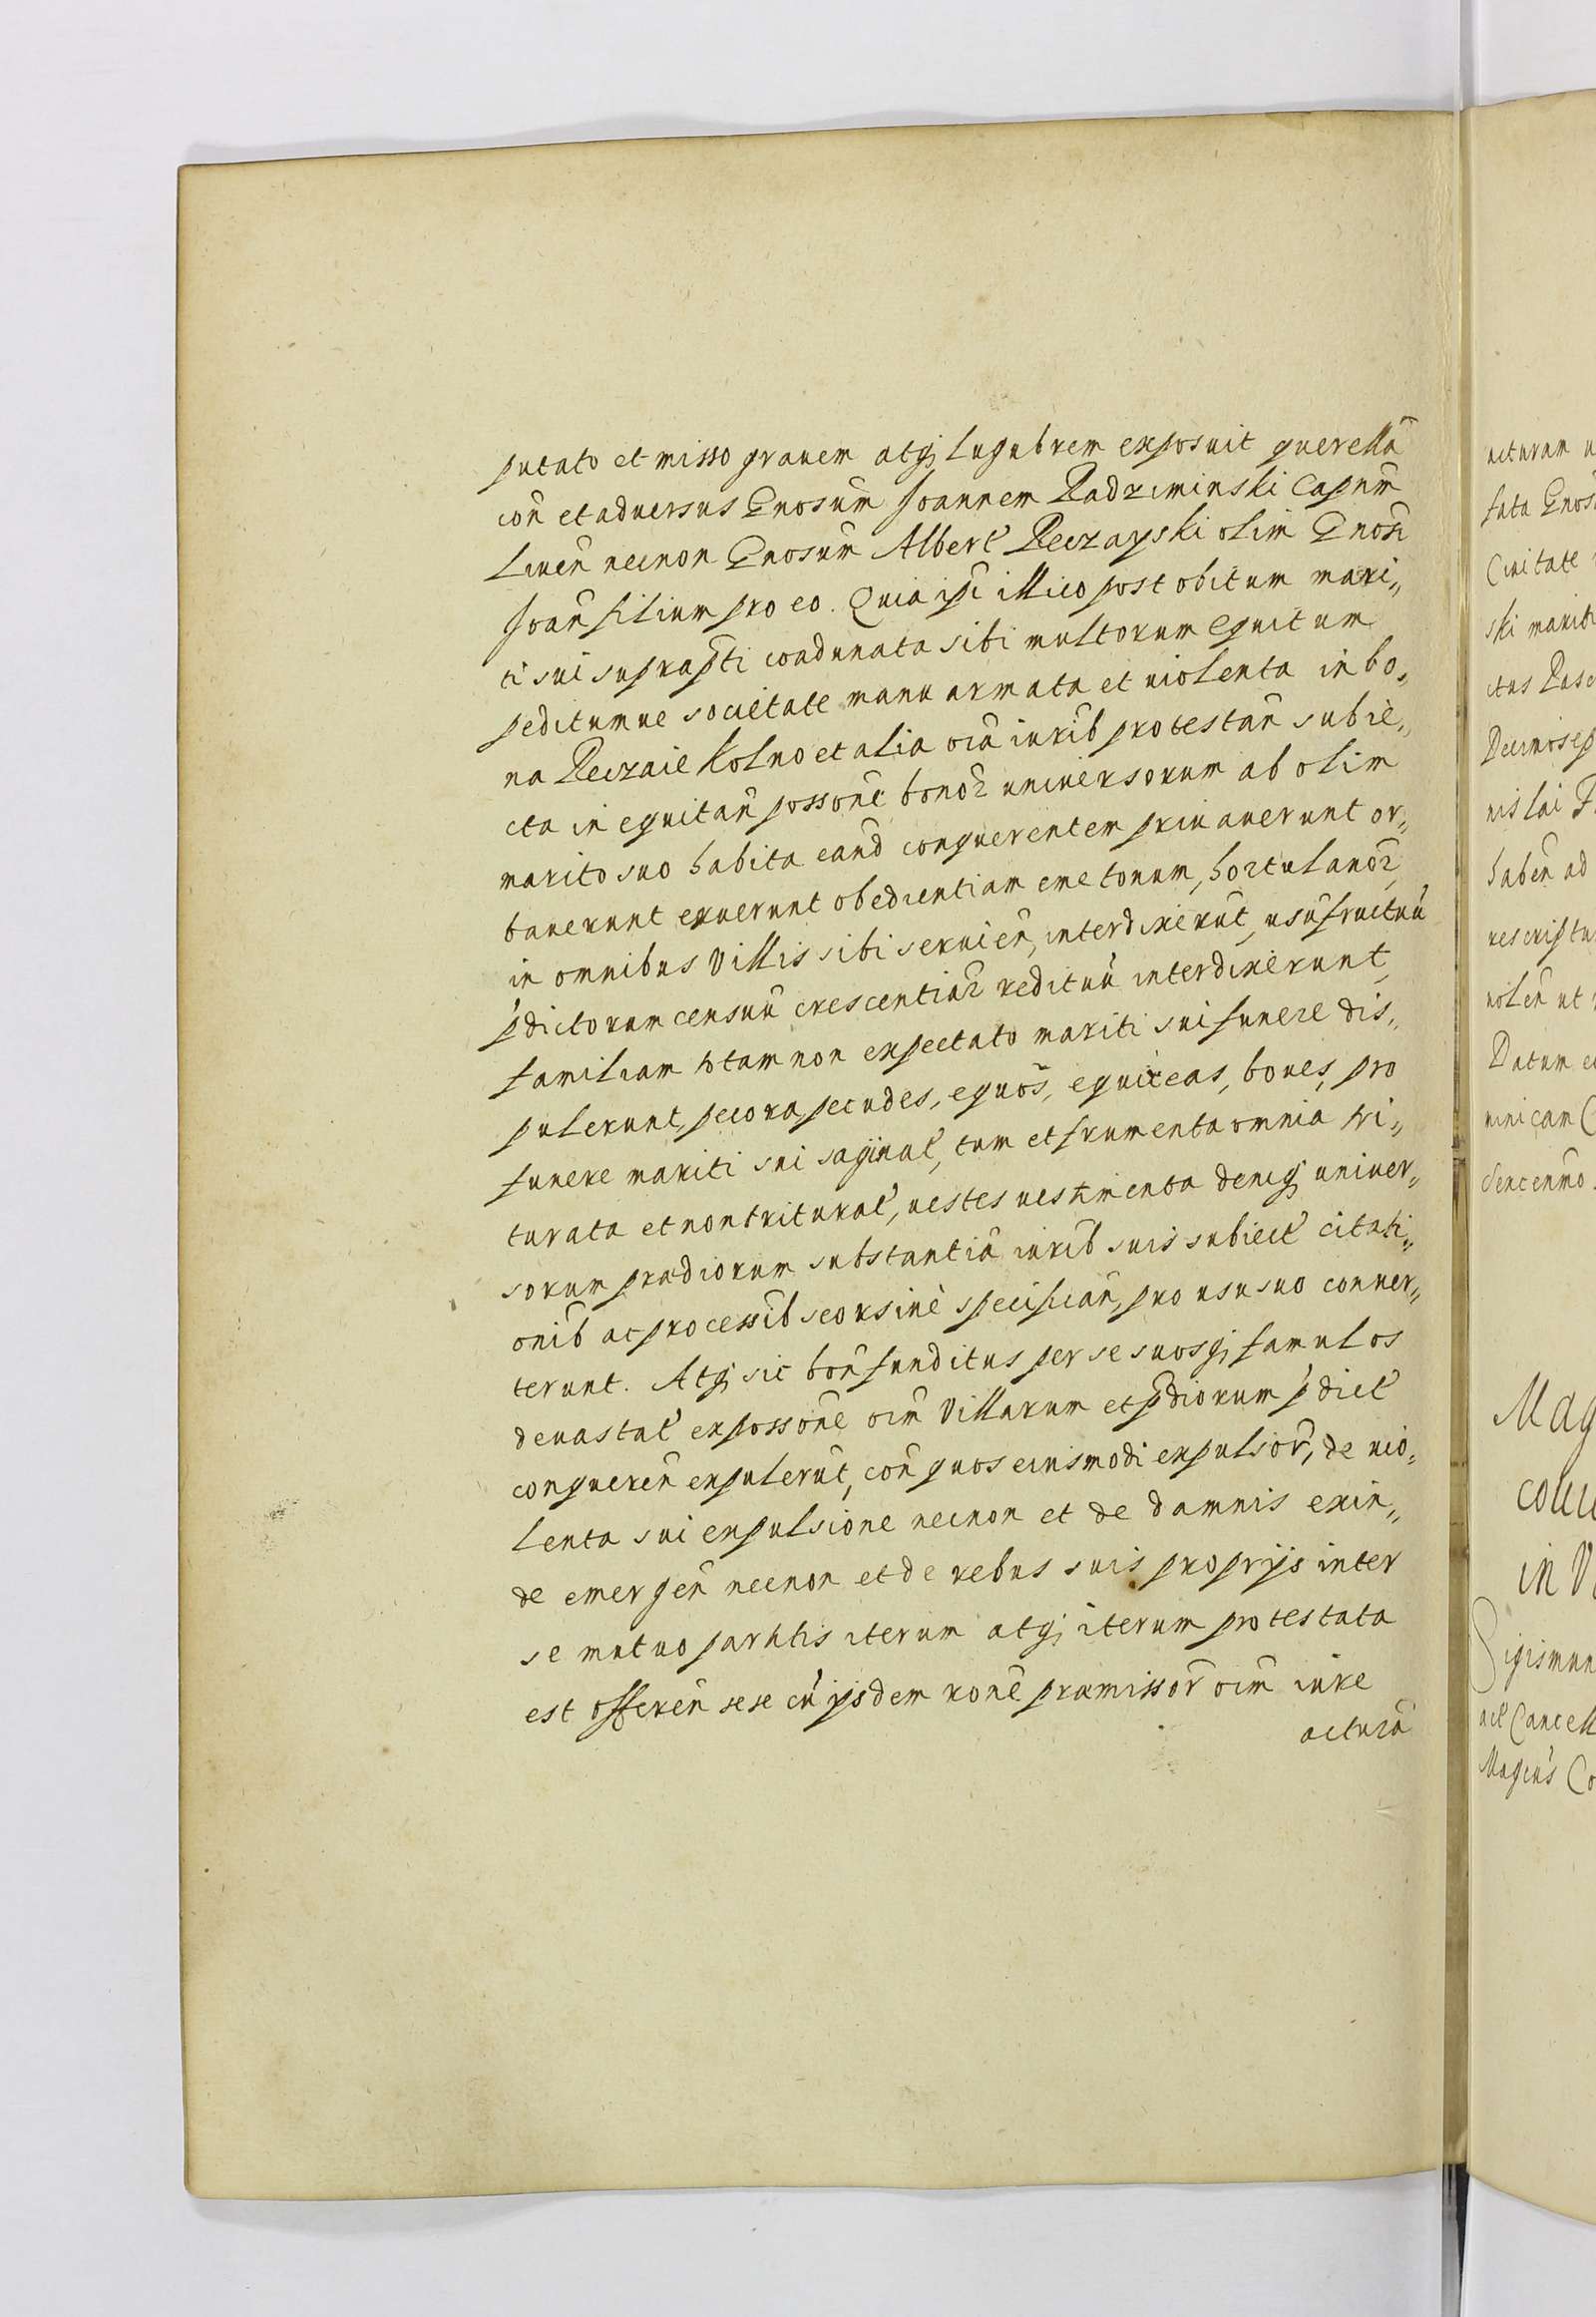 putato et misso grauem atq; lugubrem exposuit querellã
con̄ et aduersus Gnosum̄ Joannem Radziminski Capnm̄
Liuen̄ necnon Gnosum̄ Albert̃ Reczayski olim Gnosi
Joan̄ filium pro eo. Quia ip̄i illico post obitum mari„
ti sui suprap̄ti coadunata sibi multorum equitum
peditumue societate manu armata et uiolenta in bo„
na Reczaie Kolno et alia oīa iurib̄ protestan̄ subie„
cta in equitan̄ posson̄e bonoꝝ uniuersorum ab olim
marito suo habita eand̄ conquerentem priuauerunt or„
bauerunt exuerunt obedientiam cmetonum, hortulanoꝝ,
in omnibus Villis sibi seruien̄, interdixerūt, usūfructuū
p̄dictorum censuū crescentiaꝝ redituū interdixerunt,
familiam totam non expectato mariti sui funere dis„
pulerunt, pecora, pecudes, equos, equireas, boues, pro
funere mariti sui saginat̃, tum et frumenta omnia tri„
turata et non triturat̃, uestes uestimenta deniq; uniuer„
sorum prædiorum substantiā iurib̄ suis subiect̃ citati„
onib̄ ac processib̄ seorsiuè specifican̄, pro usu suo conuer„
terunt. Atq; sic bon̄ funditus per se suosq; famulos
deuastat̃ ex posson̄e oīm Villarum et p̄diorum p̄dict̃
conqueren̄ expulerūt, con̄ quos eiusmodi expulsor̄, de uio„
lenta sui expulsione necnon et de damnis exin„
de emergen̄ necnon et de rebus suis proprijs inter
se mutuo partitis iterum atq; iterum protestata
est offeren̄ sese cū ijsdem ron̄e præmissor̄ oīm iure
acturā
acturam
fata
Ciuitate
ski mariti
Decimosep
nislai
haben̄ ad
rescriptu
nolen̄ ut
Datum
nunicam
Mag
in
Sigismun
Cancell